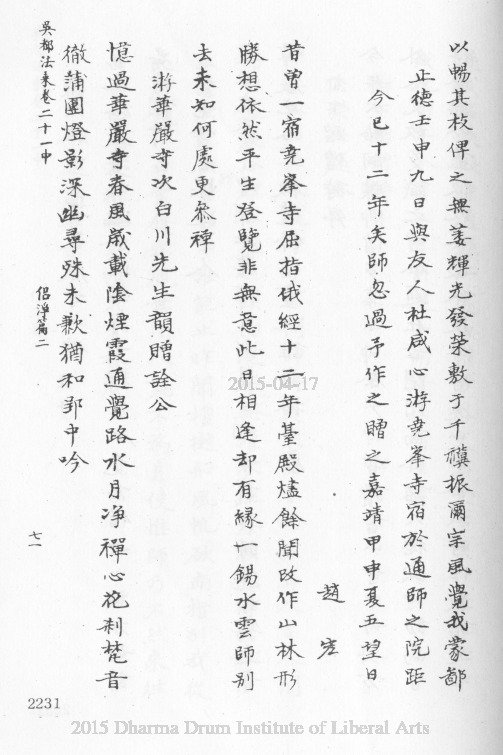 以暢其枝俾之無萎輝光發榮敷于千禩振爾宗風覺我蒙鄙
正德壬申九日與友人杜咸心游堯峯寺宿於通師之院距
今已十二年矣師忽過予作之贈之嘉靖甲申夏五望日
趙寬
昔曾一宿堯峯寺屈指俄經十二年臺殿燼餘聞改作山林形
勝想依然平生登覽非無意此日相逢却有緣一錫水雲師別
去未知何處更參禪
游華嚴寺次白川先生韻贈詮公
憶過華嚴寺春風歲載陰煙霞通覺路水月净禪心花刹梵音
徹蒲團燈影深幽尋殊未歉猶和郢中吟
吳都法乘卷二十一中
侣淨篇二
七一
2231
2015-04-17
2015 Dharma Drum Institute of Liberal Arts